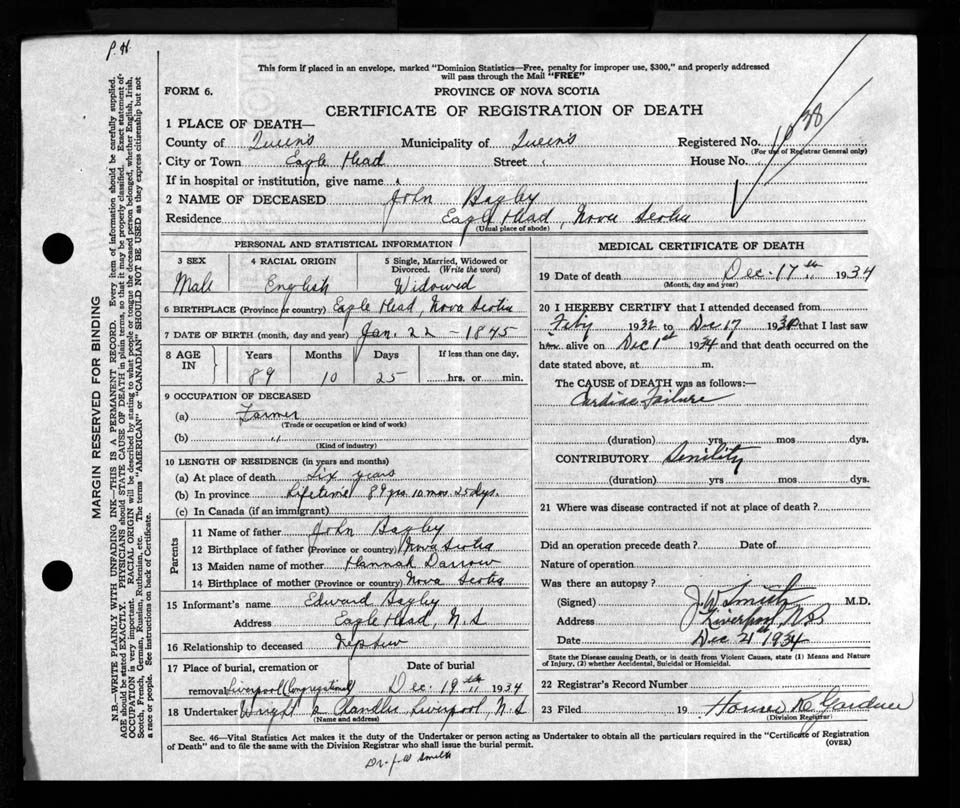 P. H.
This form if placed in an envelope, marked "Dominion Statistics—Free, penalty for improper use, $300," and properly addressed
will pass through the Mail "FREE"
FORM 6.
PROVINCE OF NOVA SCOTIA
CERTIFICATE OF REGISTRATION OF DEATH
1 PLACE OF DEATH—
County of Queen's Municipality of Queen's Registered No.
(For use of Registrar General only)
City or Town Eagle Head Street House No.
If in hospital or institution, give name
2 NAME OF DECEASED John Bagby
Residence Eagle Head, Nova Scotia
(Usual place of abode)
PERSONAL AND STATISTICAL INFORMATION
3 SEX 4 RACIAL ORIGIN 5 Single, Married, Widowed or
Divorced. (Write the word)
Male English Widowed
6 BIRTHPLACE (Province or country) Eagle Head, Nova Scotia
7 DATE OF BIRTH (month, day and year) Jan. 22 - 1845
8 AGE IN Years Months Days If less than one day,
89 10 25 hrs. or min.
9 OCCUPATION OF DECEASED
(a) Farmer
(Trade or occupation or kind of work)
(b) "
(Kind of industry)
10 LENGTH OF RESIDENCE (in years and months)
(a) At place of death Six years
(b) In province Lifetime 89 yrs. 10 mos. 25 dys.
(c) In Canada (if an immigrant)
Parents
11 Name of father John Bagby
12 Birthplace of father (Province or country) Nova Scotia
13 Maiden name of mother Hannah Darrow
14 Birthplace of mother (Province or country) Nova Scotia
15 Informant's name Edward Bagby
Address Eagle Head, N.S
16 Relationship to deceased Nephew
17 Place of burial, cremation or Date of burial
removal Liverpool (Congregational) Dec. 19th 1934
18 Undertaker Wright & Chandler Liverpool, N.S
(Name and address)
MEDICAL CERTIFICATE OF DEATH
19 Date of death Dec. 17th 1934
(Month, day and year)
20 I HEREBY CERTIFY that I attended deceased from
Feby 1932 to Dec 17 193 that I last saw
him alive on Dec 1st 1934 and that death occurred on the
date stated above, at m.
The CAUSE of DEATH was as follows:
Cardiac Failure
(duration) yrs. mos dys.
CONTRIBUTORY Senility
(duration) yrs. mos. dys.
21 Where was disease contracted if not at place of death?
Did an operation precede death? Date of
Nature of operation
Was there an autopsy?
(Signed) J.W Smith M.D.
Address Liverpool, N.S
Date Dec 21st 1934
State the Disease causing Death, or in death from Violent Causes, state (1) Means and Nature
of Injury, (2) whether Accidental, Suicidal or Homicidal.
22 Registrar's Record Number
23 Filed 19 Gardner
(Division Registrar)
Sec. 46—Vital Statistics Act makes it the duty of the Undertaker or person acting as Undertaker to obtain all the particulars required in the "Certificate of Registration
of Death" and to file the same with the Division Registrar who shall issue the burial permit.
(OVER)
Dr. J. W Smith
MARGIN RESERVED FOR BINDING
N.B.—WRITE PLAINLY WITH UNFADING INK—THIS IS A PERMANENT RECORD. Every item of information should be carefully supplied.
AGE should be stated EXACTLY. PHYSICIANS should STATE CAUSE OF DEATH in plain terms, so that it may be properly classified. Exact statement of
OCCUPATION is very important. RACIAL ORIGIN will be described by stating to what people or tongue the deceased person belonged, whether English, Irish,
Scotch, French, German, Russian, Ruthenian, etc. The terms "AMERICAN" or "CANADIAN" SHOULD NOT BE USED as they express citizenship but not
a race or people. See instructions on back of Certificate.